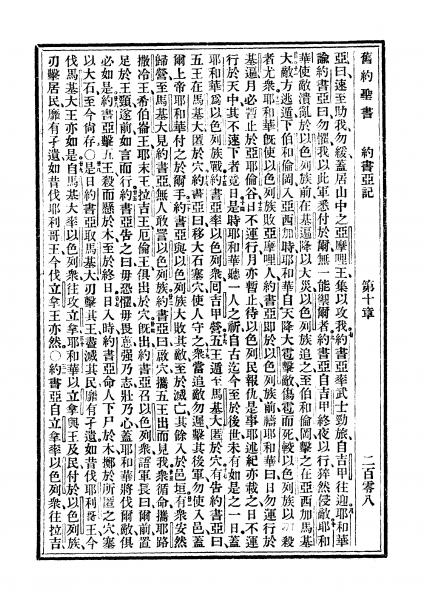 舊約聖書 約書亞記 第十章 二百零八
亞曰速至助我勿緩蓋居山中之亞摩哩王集以攻我約書亞率武士勁旅自吉甲往迎耶和華
諭約書亞曰勿懼我以此軍悉付於爾無一能禦爾者約書亞自吉甲終夜以行猝然侵敵耶和
華使敵潰亂於以色列族前在基遍降以大災以色列族追之至伯和倫岡擊之在亞西加馬基
大敵方逃遁下伯和倫岡入亞西加時耶和華自天降大雹擊敵傷雹而死較以色列族以刃殺
者尤衆耶和華旣使以色列族敗亞摩哩人約書亞即於以色列族前禱耶和華曰日勿運行於
基遍月必暫止於亞耶倫谷日不運行月亦暫止待以色列民報仇是事耶述紀亦載之日不運
行於天中其不速下者竟日是時耶和華聽一人之祈自古迄今至於後世未有如是之一日蓋
耶和華爲以色列族戰約書亞率以色列衆回吉甲營五王遁至馬基大匿於穴有告約書亞曰
五王在馬基大匿於穴約書亞曰移大石塞穴使人守之衆當追敵勿遲擊其後軍勿使入邑蓋
爾上帝耶和華付之於爾手約書亞與以色列族大敗其敵至於滅亡其餘入於邑垣有衆安然
歸營至馬基大見約書亞無人敢置喙以色列族約書亞曰啟穴攜五王出而見我衆循命攜耶路
撒冷王希伯崙王耶末王拉吉王厄倫王俱出於穴旣出約書亞召以色列衆諭軍長曰爾前置
足於王頸遂前如言而行約書亞告之曰毋恐懼毋畏葸强乃志壯乃心蓋耶和華將伐爾敵俱
必如是約書亞擊五王殺而懸於木至於終日日入時約書亞命人下尸於木擲於所匿之穴塞
以大石至今尙存○是日約書亞取馬基大刃擊其王盡滅其民靡有孑遺如昔伐耶利哥王今
伐馬基大王亦如是自馬基大率以色列衆往攻立拿耶和華以立拿與王及民付於以色列族
刃擊居民靡有孑遺如昔伐耶利哥王今伐立拿王亦然○約書亞自立拿率以色列衆往拉吉